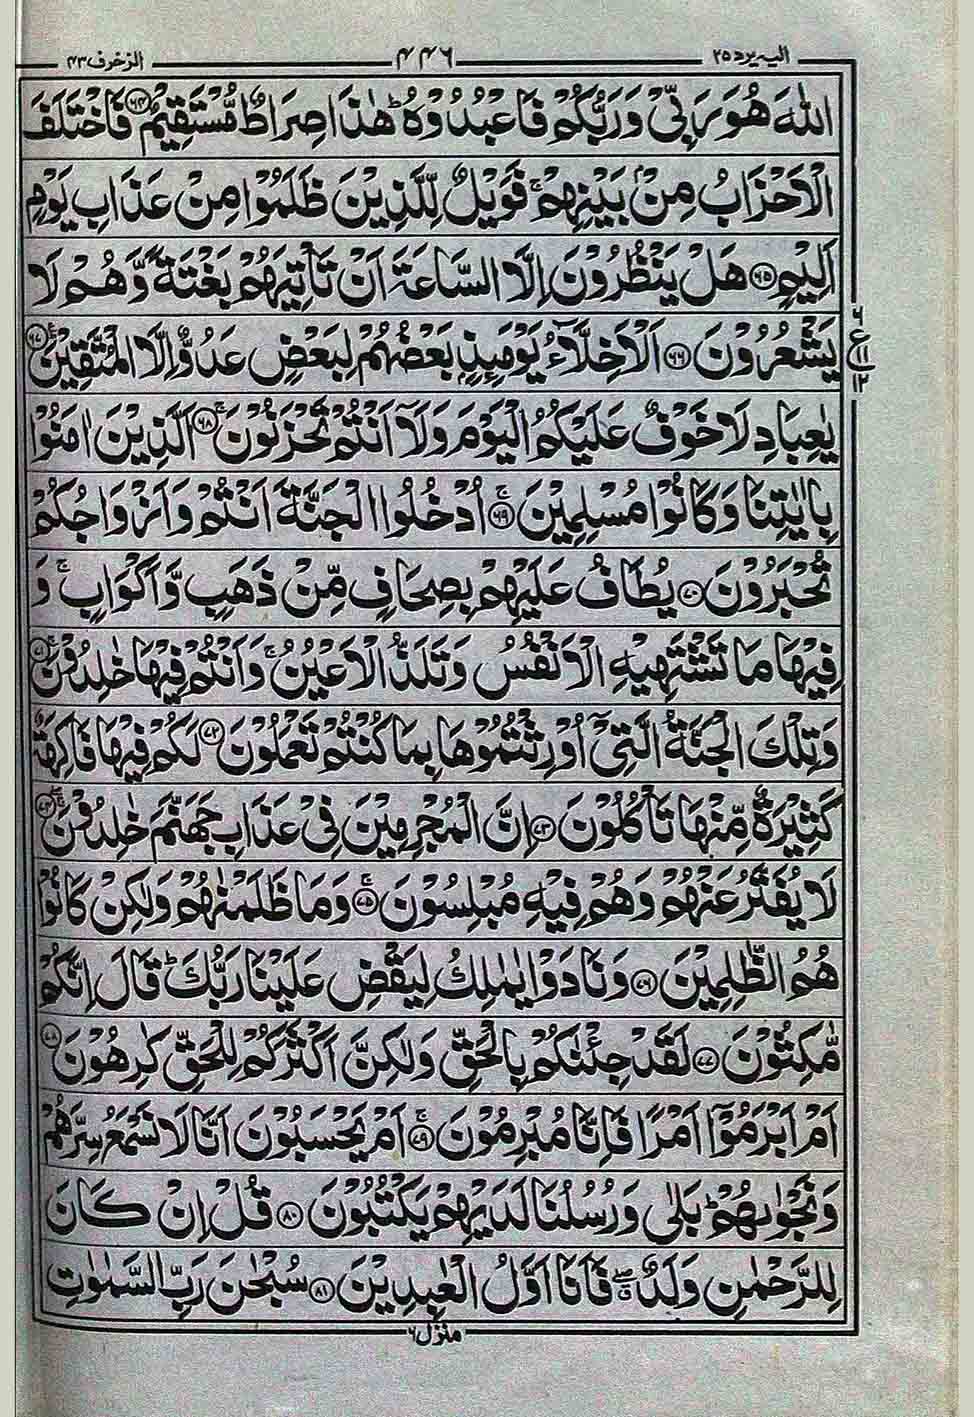 الیه یرد ۲۵ ۴۴۶ الزخرف ۴۳
اللّٰهَ هُوَ رَبِّیْ وَ رَبُّكُمْ فَاعْبُدُوْهُؕ هٰذَا صِرَاطٌ مُّسْتَقِیْمٌ ﴿۶۴﴾ فَاخْتَلَفَ
الْاَحْزَابُ مِنْۢ بَیْنِهِمْۚ فَوَیْلٌ لِّلَّذِیْنَ ظَلَمُوْا مِنْ عَذَابِ یَوْمٍ
اَلِیْمٍ ﴿۶۵﴾ هَلْ یَنْظُرُوْنَ اِلَّا السَّاعَةَ اَنْ تَاْتِیَهُمْ بَغْتَةً وَّ هُمْ لَا
یَشْعُرُوْنَ ﴿۶۶﴾ اَلْاَخِلَّآءُ یَوْمَىِٕذٍۭ بَعْضُهُمْ لِبَعْضٍ عَدُوٌّ اِلَّا الْمُتَّقِیْنَ ﴿۶۷﴾
۶ ع ۱۱ ۱۲
یٰعِبَادِ لَا خَوْفٌ عَلَیْكُمُ الْیَوْمَ وَ لَاۤ اَنْتُمْ تَحْزَنُوْنَۚ ﴿۶۸﴾ اَلَّذِیْنَ اٰمَنُوْا
بِاٰیٰتِنَا وَ كَانُوْا مُسْلِمِیْنَۚ ﴿۶۹﴾ اُدْخُلُوا الْجَنَّةَ اَنْتُمْ وَ اَزْوَاجُكُمْ
تُحْبَرُوْنَ ﴿۷۰﴾ یُطَافُ عَلَیْهِمْ بِصِحَافٍ مِّنْ ذَهَبٍ وَّ اَكْوَابٍۚ وَ
فِیْهَا مَا تَشْتَهِیْهِ الْاَنْفُسُ وَ تَلَذُّ الْاَعْیُنُۚ وَ اَنْتُمْ فِیْهَا خٰلِدُوْنَۚ ﴿۷۱﴾
وَ تِلْكَ الْجَنَّةُ الَّتِیْۤ اُوْرِثْتُمُوْهَا بِمَا كُنْتُمْ تَعْمَلُوْنَ ﴿۷۲﴾ لَكُمْ فِیْهَا فَاكِهَةٌ
كَثِیْرَةٌ مِّنْهَا تَاْكُلُوْنَ ﴿۷۳﴾ اِنَّ الْمُجْرِمِیْنَ فِیْ عَذَابِ جَهَنَّمَ خٰلِدُوْنَۚۖ ﴿۷۴﴾
لَا یُفَتَّرُ عَنْهُمْ وَ هُمْ فِیْهِ مُبْلِسُوْنَۚ ﴿۷۵﴾ وَ مَا ظَلَمْنٰهُمْ وَ لٰكِنْ كَانُوْا
هُمُ الظّٰلِمِیْنَ ﴿۷۶﴾ وَ نَادَوْا یٰمٰلِكُ لِیَقْضِ عَلَیْنَا رَبُّكَؕ قَالَ اِنَّكُمْ
مّٰكِثُوْنَ ﴿۷۷﴾ لَقَدْ جِئْنٰكُمْ بِالْحَقِّ وَ لٰكِنَّ اَكْثَرَكُمْ لِلْحَقِّ كٰرِهُوْنَ ﴿۷۸﴾
اَمْ اَبْرَمُوْۤا اَمْرًا فَاِنَّا مُبْرِمُوْنَۚ ﴿۷۹﴾ اَمْ یَحْسَبُوْنَ اَنَّا لَا نَسْمَعُ سِرَّهُمْ
وَ نَجْوٰىهُمْؕ بَلٰى وَ رُسُلُنَا لَدَیْهِمْ یَكْتُبُوْنَ ﴿۸۰﴾ قُلْ اِنْ كَانَ
لِلرَّحْمٰنِ وَلَدٌ ۖۗ فَاَنَا اَوَّلُ الْعٰبِدِیْنَ ﴿۸۱﴾ سُبْحٰنَ رَبِّ السَّمٰوٰتِ
منزل ۶